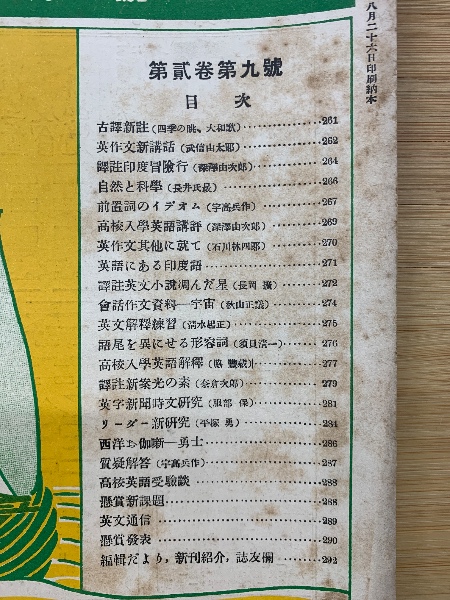 八月二十六日印刷納本
第貳卷第九號
目次
古譯新註(四季の眺、大和歌)…………261
英作文新講話(武信由太郎)…………262
譯註印度冒險行(深澤由次郎)…………264
自然と科學(長井氏㝡)…………266
前置詞のイデオム(宇高兵作)…………267
高校入學英語講評(深澤由次郎)…………269
英作文其他に就て(石川林四郎)…………270
英語にある印度語…………271
譯註英文小說凋んだ星(長岡 擴)…………272
會話作文資料—宇宙(秋山正議)…………274
英文解釋練習(清水起正)…………275
語尾を異にせる形容詞(須貝清一)…………276
高校入學英語解釋(脇 豐祓)…………277
譯註新榮光の素(奈倉次郎)…………279
英字新聞時文硏究(服部 保)…………281
リーダー新硏究(平塚 勇)…………284
西洋お伽噺—勇士…………286
質疑解答(宇高兵作)…………287
高校英語受驗談…………288
懸賞新課題…………288
英文通信…………289
懸賞發表…………290
編輯だより，新刊紹介，誌友欄…………292